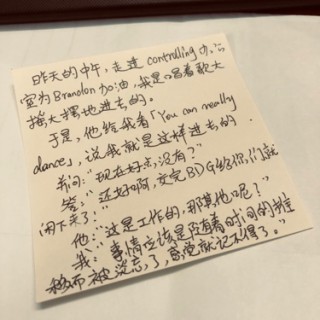 昨天的中午，走进 controlling 办公
室为 Brandon 加油，我是唱着歌大
摇大摆地进去的。
于是，他给我看「You can really
dance」，说我就是这样进去的
我问：“现在好点没有？”
答：“还好啊，交完BDG给你们就
闲下来了！”
他：“这是工作的，那其他呢？”
我：“事情应该是随着时间的推
移而被淡忘了，感觉就记不得了。”